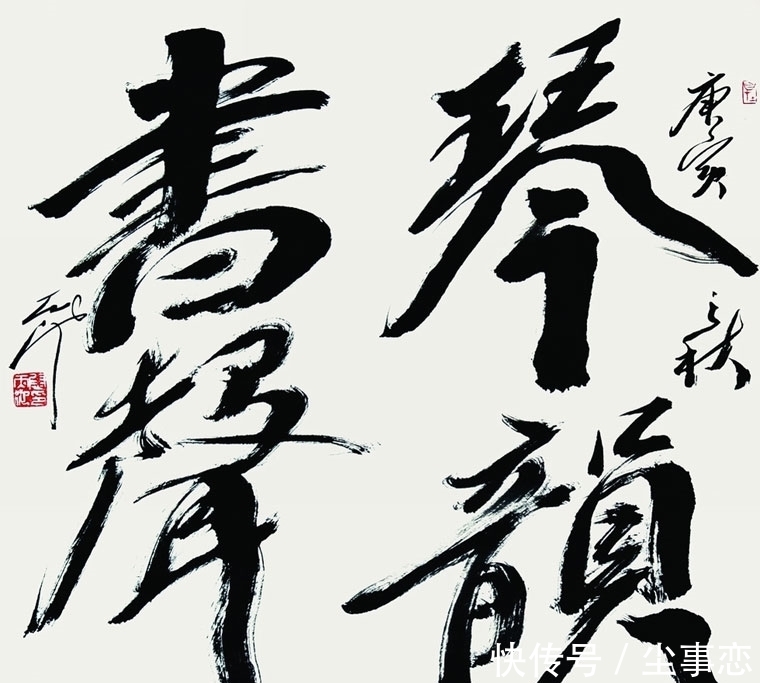 庚寅之秋
琴韻
書聲
快传号 / 尘事恋